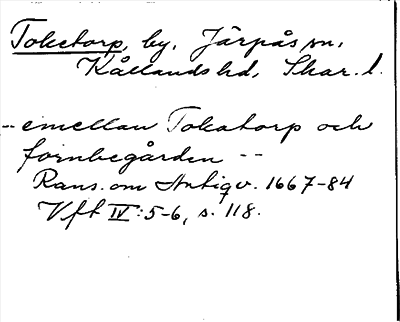 Toketorp, by, Järpås sn,
Kållands hd, Skar. l.
-- emellan Tokatorp och
fornbegården --
Rans. om Antiqv. 1667-84
Vft IV:5-6, s. 118.